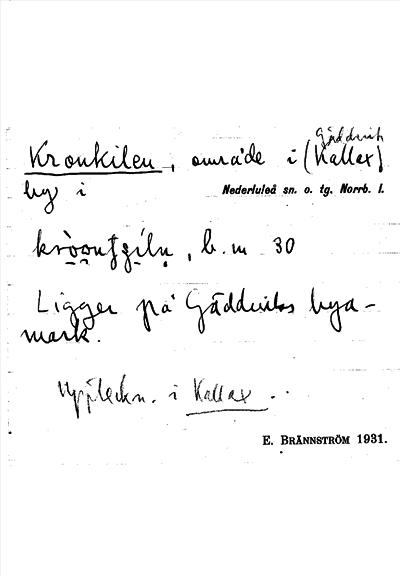 Gäddvik
Kronkilen, område i (Kallax)
by i Nederluleå sn. o. tg. Norrb. l.
b.m 30
Ligger på Gäddviks bya-
mark.
Uppteckn. i Kallax.
E. BRÄNNSTRÖM 1931.